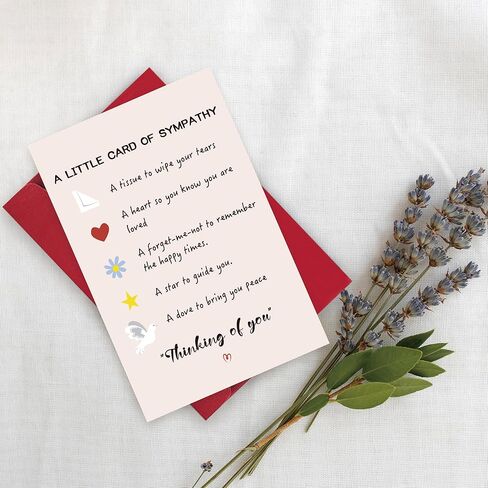 A LITTLE CARD OF SYMPATHY
A tissue to wipe your tears
A heart so you know you are
loved
A forget-me-not to remember
the happy times.
A star to guide you.
A dove to bring you peace
"Thinking of you"